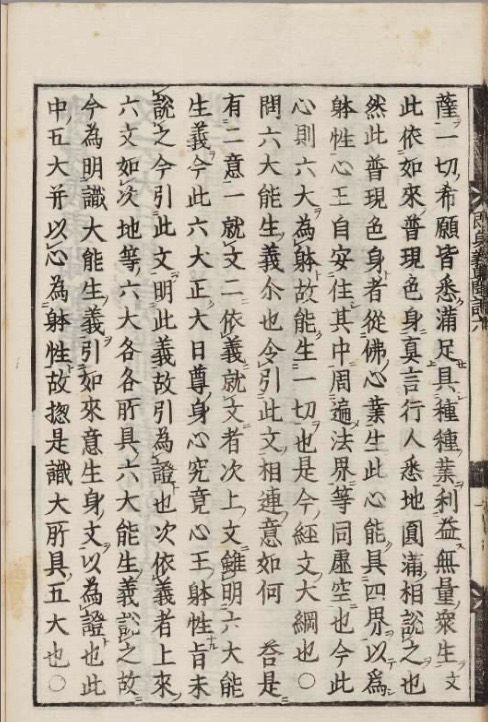 薩一切希願皆悉滿足具種種業利益無量衆生文
此依如來普現色身真言行人悉地圓滿相説之也
然此普現色身者從佛心業生此心能具四界以爲
躰性心王自安住其中周遍法界等同虛空也今此
心則六大為躰故能生一切也是今經文大綱也○
問六大能生義尒也令引此文相連意如何 荅是
有二意一就文二依義就文者次上文雖明六大能
生義今此六大正大日尊身心究竟心王躰性旨未
説之今引此文明此義故引為證也次依義者上來
六文如次地等六大各各所具六大能生義説之故
今為明識大能生義引如來意生身文以為證也此
中五大并以心為躰性故惣是識大所具五大也○